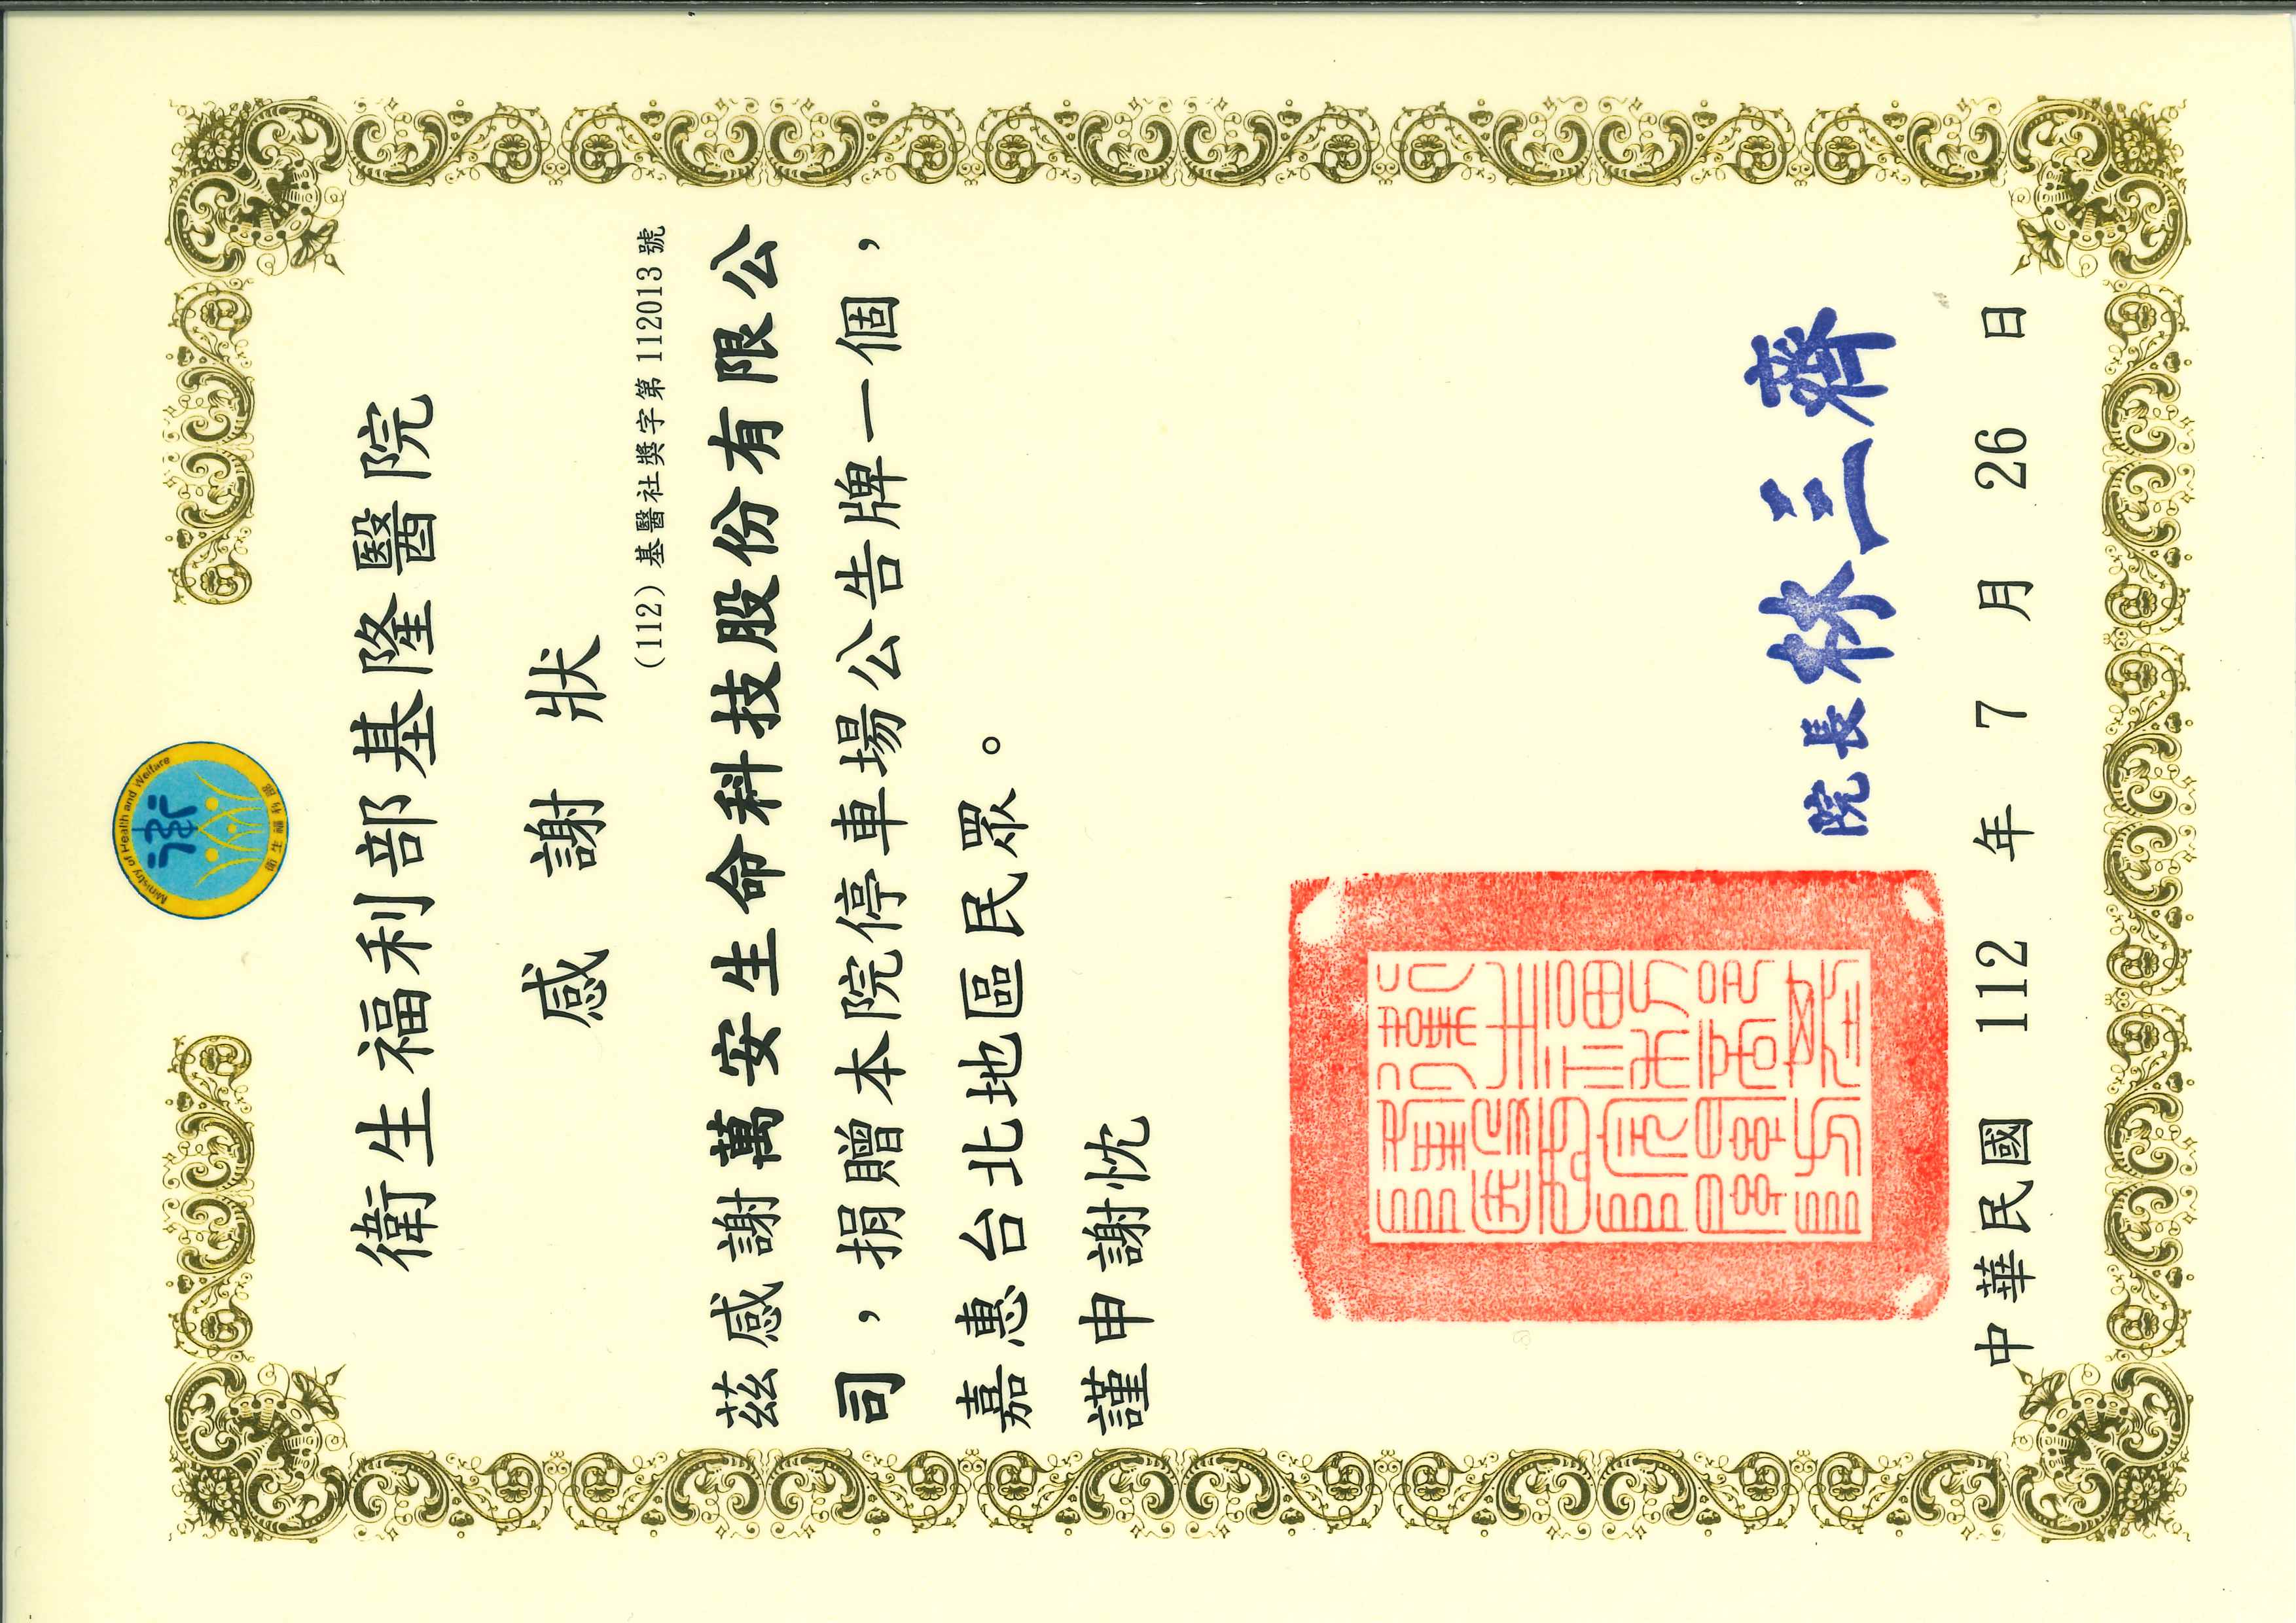 Ministry of Health and Welfare
衛生福利部
衛生福利部基隆醫院
感謝狀
(112)基醫社獎字第112013號
茲感謝萬安生命科技股份有限公
司，捐贈本院停車場公告牌一個，
嘉惠台北地區民眾。
謹申謝忱
院長林三齊
中華民國 112 年 7 月 26 日